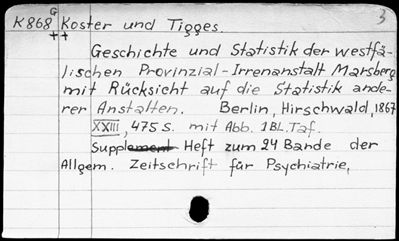 3
G
K868 Koster und Tigges.
++
Geschichte und Statistik der westfä-
lischen Provinzial-Irrenanstalt Marsberg
mit Rücksicht auf die Statistik ande-
rer Anstalten. Berlin, Hirschwald, 1867
XXIII, 475 S. mit Abb. 1 Bl. Taf.
Supplement Heft zum 24 Bande der
Allgem. Zeitschrift für Psychiatrie,